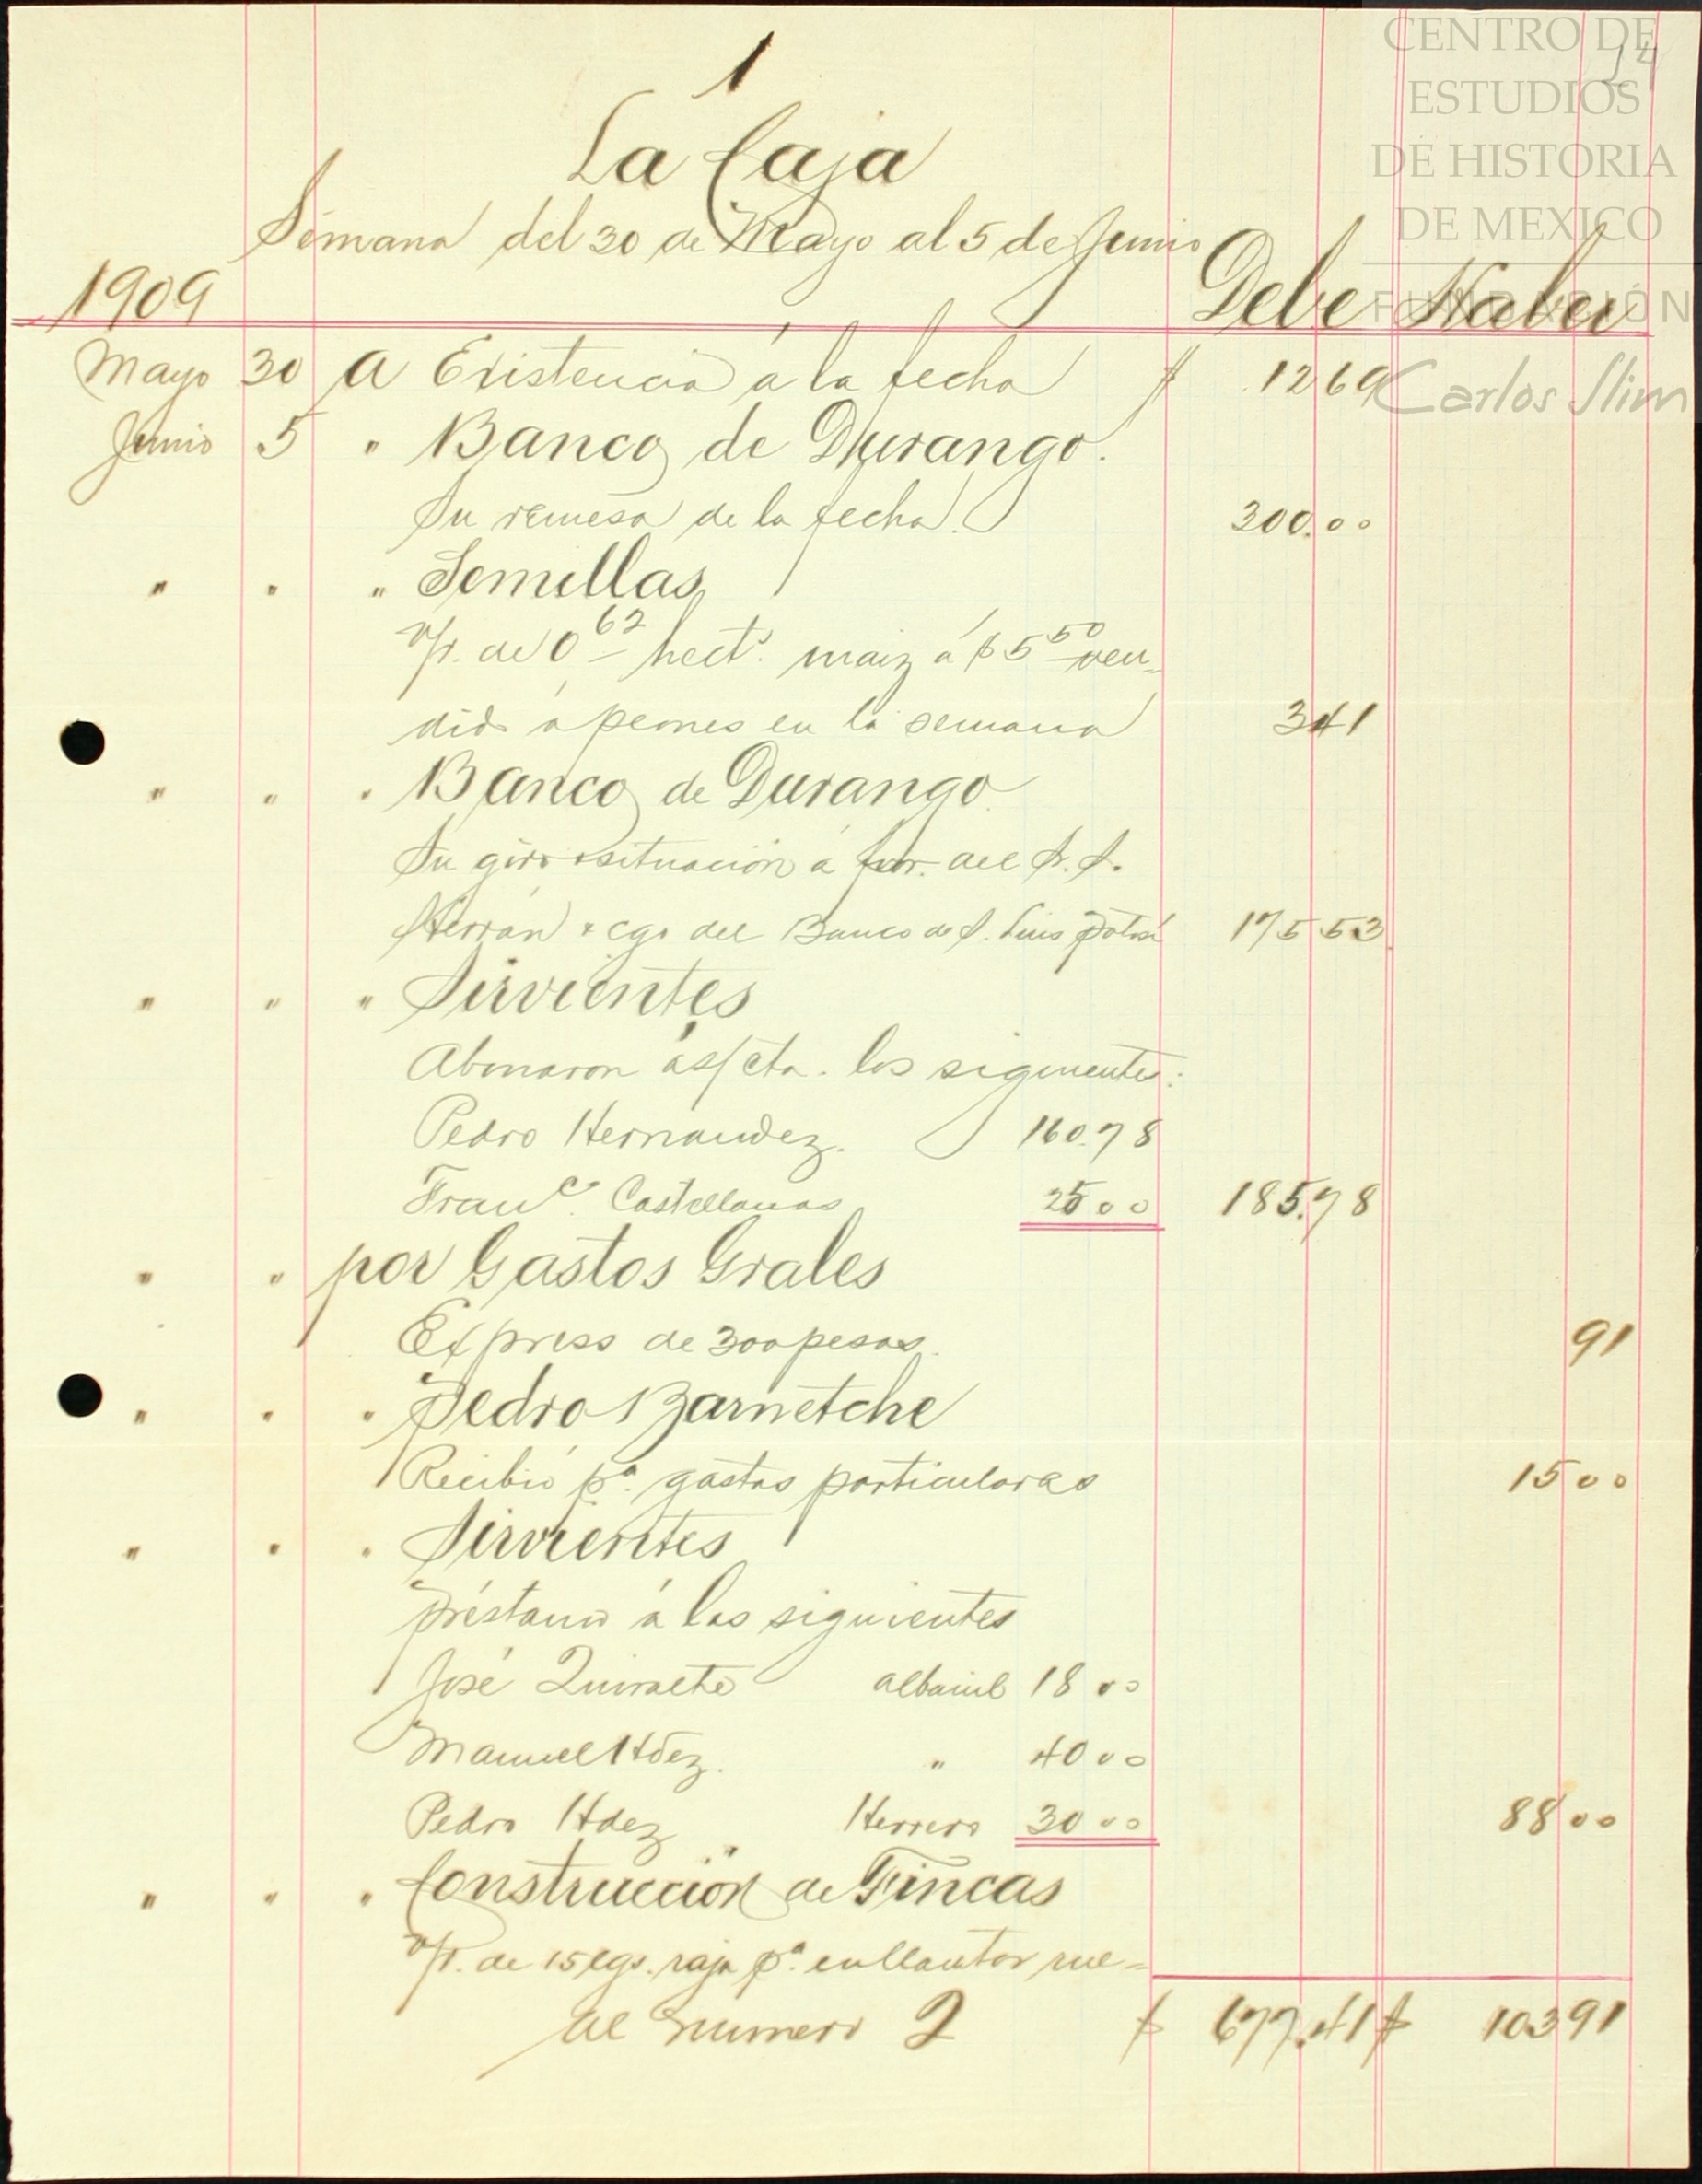 1
24
CENTRO DE
ESTUDIOS
DE HISTORIA
DE MEXICO
FUNDACIÓN
Carlos Slim
La Caja
Semana del 30 de Mayo al 5 de Junio
1909 Debe Haber
Mayo 30 A Existencia á la fecha $ 12 69
Junio 5 " Banco de Durango.
Su remesa de la fecha. 300.00
" " " Semillas
v/. de 0 62 hects. maiz á $5 50 ven-
did á peones en la semana 3 41
" " " Banco de Durango
Su giro situación á fvr. del Sr. S.
Herrán á cgo del Banco de S. Luis Potosí 175 53
" " " Sirvientes
Abonaron á s/cta. los siguientes:
Pedro Hernandez. 160.78
Franco. Castellanos 25 00 185.78
" " por Gastos Grales
Express de 300 pesos. 91
" " " Pedro Barnetche
Recibió pa. gastos particulares 15 00
" " " Sirvientes
Préstamo á los siguientes
José Quiralte albañil 18 00
Manuel Hdez. " 40 00
Pedro Hdez Herrero 30 00 88 00
" " " Construcción de Fincas
v/. de 15 cgs. raja pa. enllantar rue-
al numero 2 $ 677.41 $ 103 91